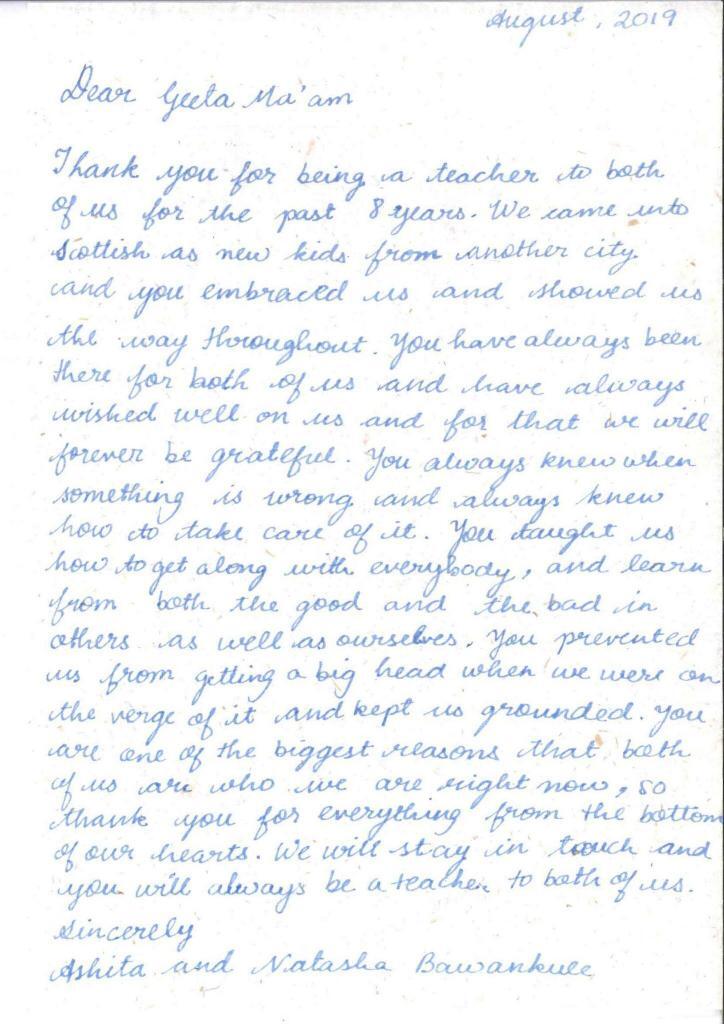 August, 2019
Dear Geeta Ma'am
Thank you for being a teacher to both
of us for the past 8 years. We came into
Scottish as new kids from another city
and you embraced us and showed us
the way throughout. You have always been
there for both of us and have always
wished well on us and for that we will
forever be grateful. You always knew when
something is wrong and always knew
how to take care of it. You taught us
how to get along with everybody, and learn
from both the good and the bad in
others as well as ourselves. You prevented
us from getting a big head when we were on
the verge of it and kept us grounded. You
are one of the biggest reasons that both
of us are who we are right now, so
thank you for everything from the bottom
of our hearts. We will stay in touch and
you will always be a teacher to both of us.
Sincerely
Ashita and Natasha Bawankule